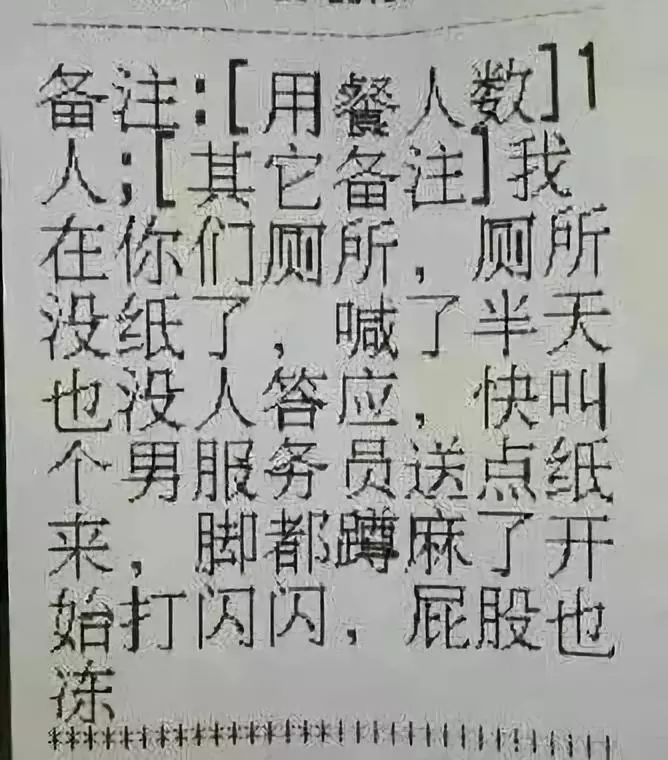 备注:[用餐人数]1
人;[其它备注]我
在你们厕所，厕所
没纸了，喊了半天
也没人答应，快叫
个男服务员送点纸
来，脚都蹲麻了开
始打闪闪，屁股也
冻
********************************